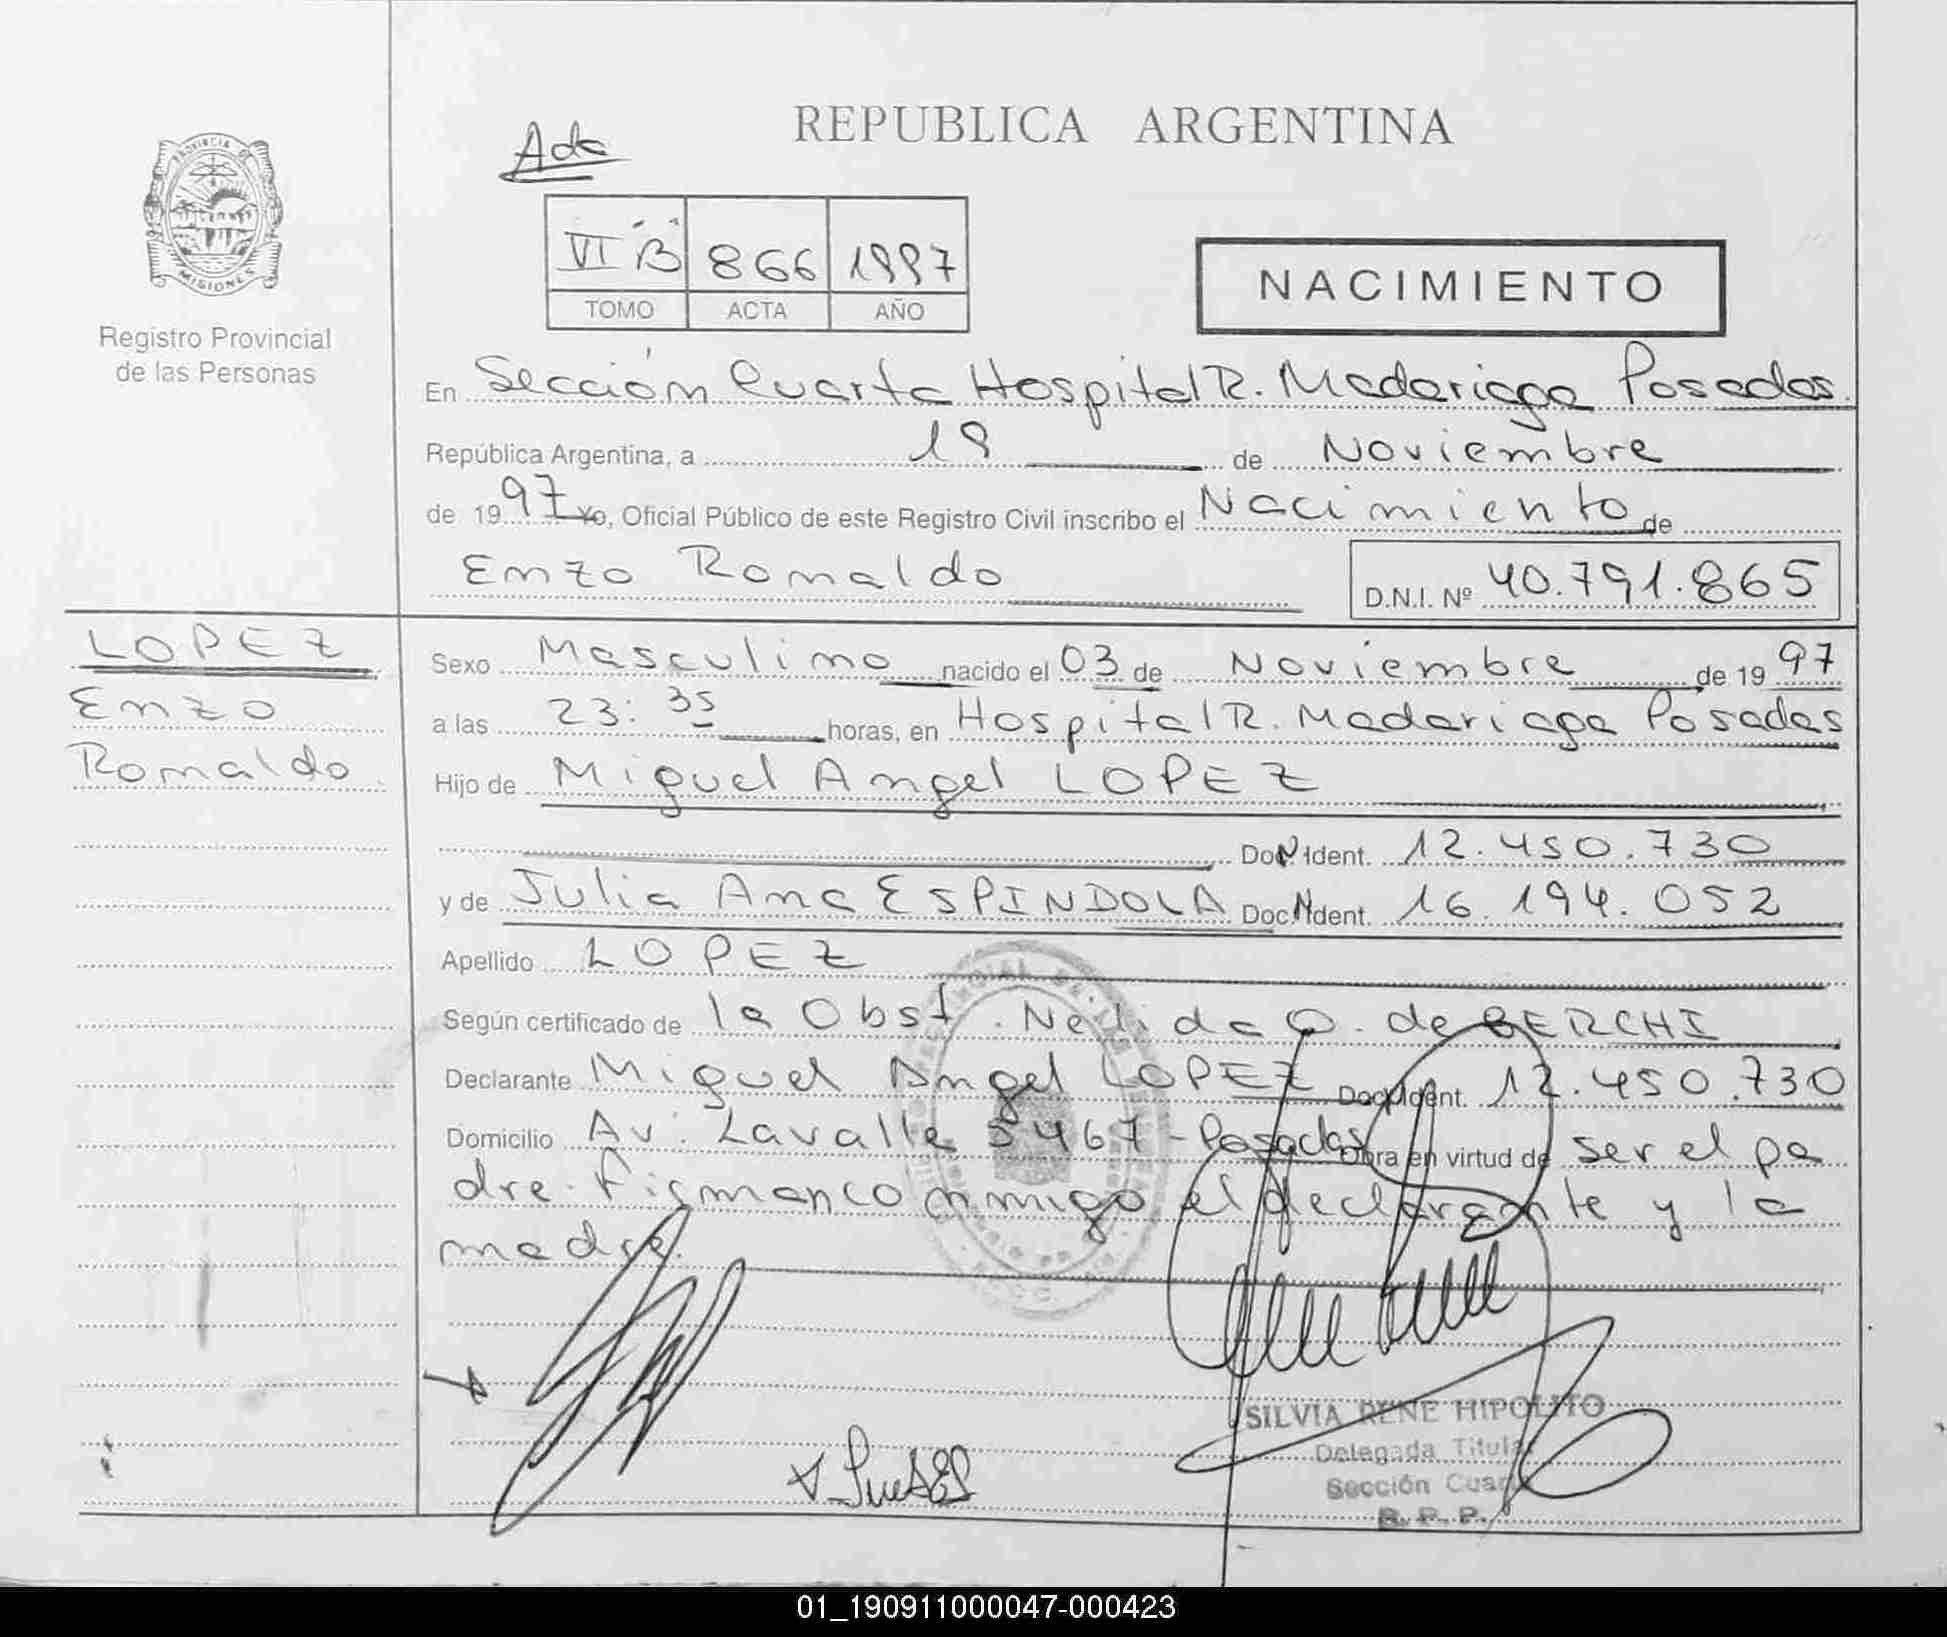 REPUBLICA ARGENTINA
PROVINCIA DE
MISIONES
Registro Provincial
de las Personas
VI "B" 866 1997
TOMO ACTA AÑO
NACIMIENTO
En Sección Cuarta Hospital R. Madariaga Posadas.
República Argentina, a 19 de Noviembre
de 1997 Yo, Oficial Público de este Registro Civil inscribo el Nacimiento de
Enzo Ronaldo D.N.I. Nº 40.791.865
LOPEZ
Enzo
Ronaldo.
Sexo Masculino nacido el 03 de Noviembre de 1997
a las 23:35 horas, en Hospital R. Madariaga Posadas
Hijo de Miguel Angel LOPEZ
Doc. Ident. 12.450.730
y de Julia Ana ESPINDOLA Doc. Ident. 16.194.052
Apellido LOPEZ
Según certificado de la Obst. Nelida O. de BERCHI
Declarante Miguel Angel LOPEZ Doc. Ident. 12.450.730
Domicilio Av. Lavalle 5467 - Posadas Obra en virtud de ser el pa
dre. Firman conmigo el declarante y la
madre.
SILVIA RENE HIPOLITO
Delegada Titular
Sección Cuarta
R. P. P.
01_190911000047-000423